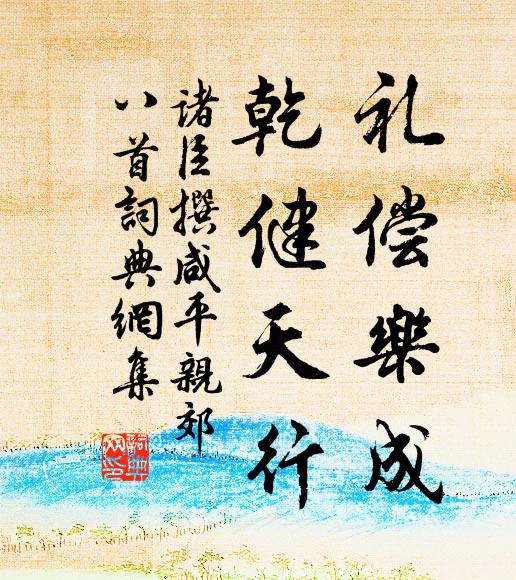 礼偿樂成
乾健天行
诸臣撰咸平親郊
八首詞典網集